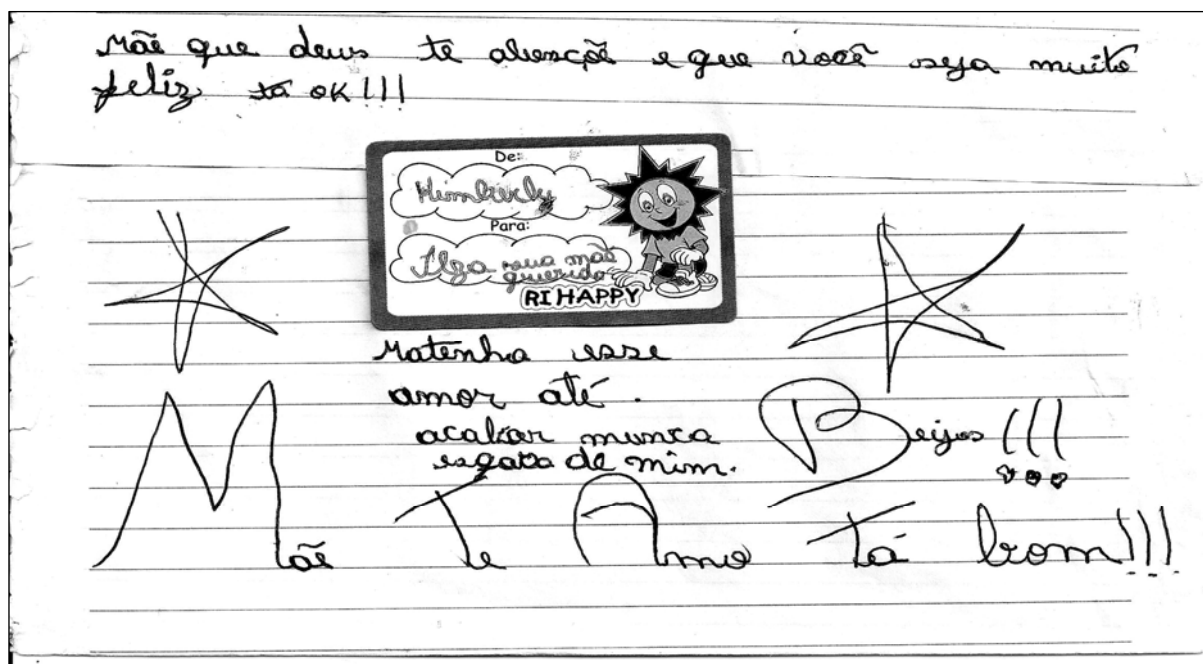 Mãe que deus te abençõe e que você seja muito
feliz tá ok!!!
De:
Kimberly
Para:
Ilza sua mãe
querida
RI HAPPY
Matenha esse
amor até.
acabar nunca
esqueça de mim.
Beijos!!!
Mãe Te Amo Tá bom!!!